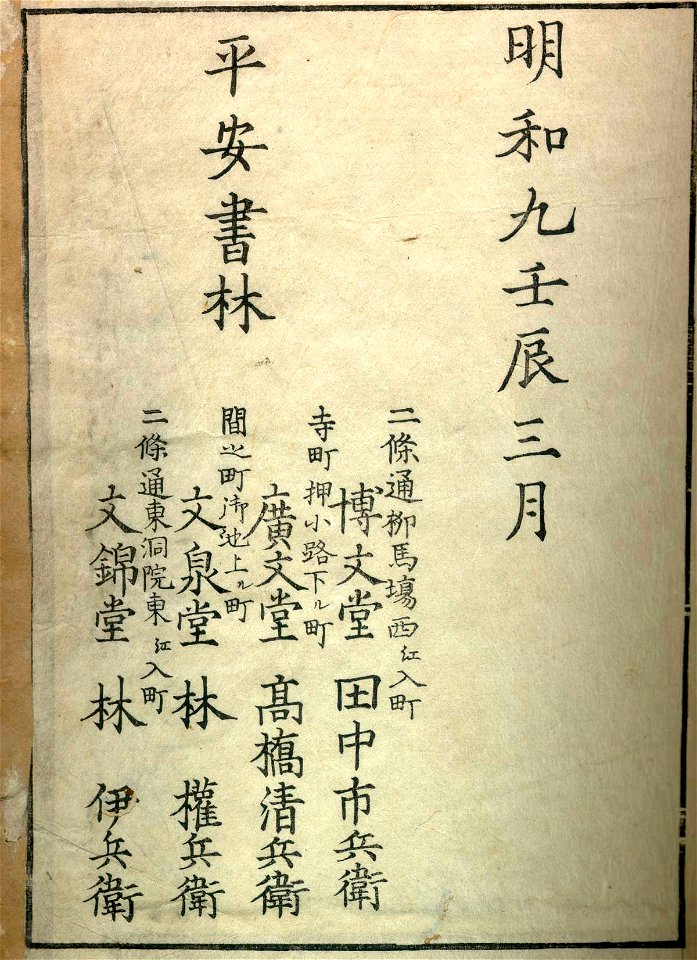 明和九壬辰三月
平安書林
二條通柳馬塲西江入町
博文堂 田中市兵衛
寺町押小路下ル町
廣文堂 髙橋清兵衛
間之町御池上ル町
文泉堂 林 權兵衛
二條通東洞院東江入町
文錦堂 林 伊兵衛